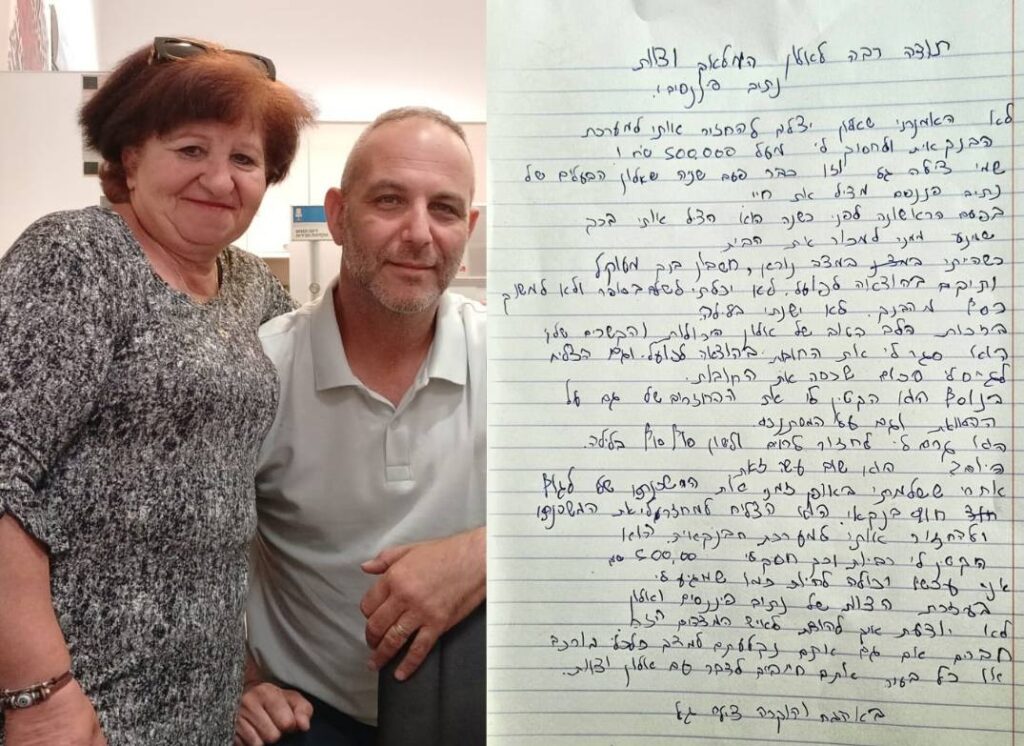 תודה רבה לאלון המלאך וצוות
נתיב פיננסים!
לא האמנתי שאלון יצליח להחזיר אותי למערכת
הבנקאית ולחסוך לי מעל 500,000 ש"ח!
שמי צילה גל וזו כבר פעם שניה שאלון הבעלים של
נתיב פיננסים מציל את חיי
בפעם הראשונה לפני כשנה הוא הציל אותי בכך
שמנע ממני למכור את הבית
כשהייתי במצב נוראי, חשבון בנק מעוקל
ותיקים בהוצאה לפועל. לא יכולתי ולא למשוך
כסף מהבנק. לא ישנתי בלילה
בזכות הלב הטוב של אלון היכולות והקשרים שלו
הוא סגר לי את החובות בהוצאה לפועל וגם הצליח
לגייס לי סכום שכסה את החובות.
בנוסף הוא הקטין לי את ההחזרים שלי גם על
ההלוואות וגם על המשכנתא.
הוא גרם לי לחזור לחיים ולישון סוף סוף בלילה.
היום הוא שוב עשה זאת
אחרי ששילמתי באופן זמני את המשכנתא שלי לגוף
חוץ בנקאי הוא הצליח למחזר לי את המשכנתא
ולהחזיר אותי למערכת הבנקאית. הוא
הקטין לי ריבית וכך חסך לי 500,000 ש"ח
אני עכשיו יכולה לחיות כמו שמגיע לי
בעזרת הצוות של נתיב פיננסים ואלון
לא יודעת איך להודות לאיש המדהים הזה
חברים אם גם אתם נקלעתם למצב כלכלי בורכם
או כל בעיה אתם חייבים לדבר עם אלון וצוות.
באהבה והוקרה צילה גל